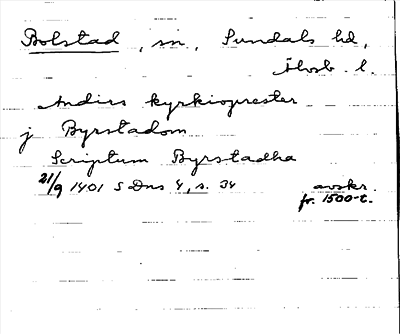 Bolstad, sn, Sundals hd,
Älvsb. l.
Andirs kyrkioprester
j Byrstadom
Scriptum Byrstadha
21/9 1401 SDns 4, s. 34 avskr.
fr. 1500-t.